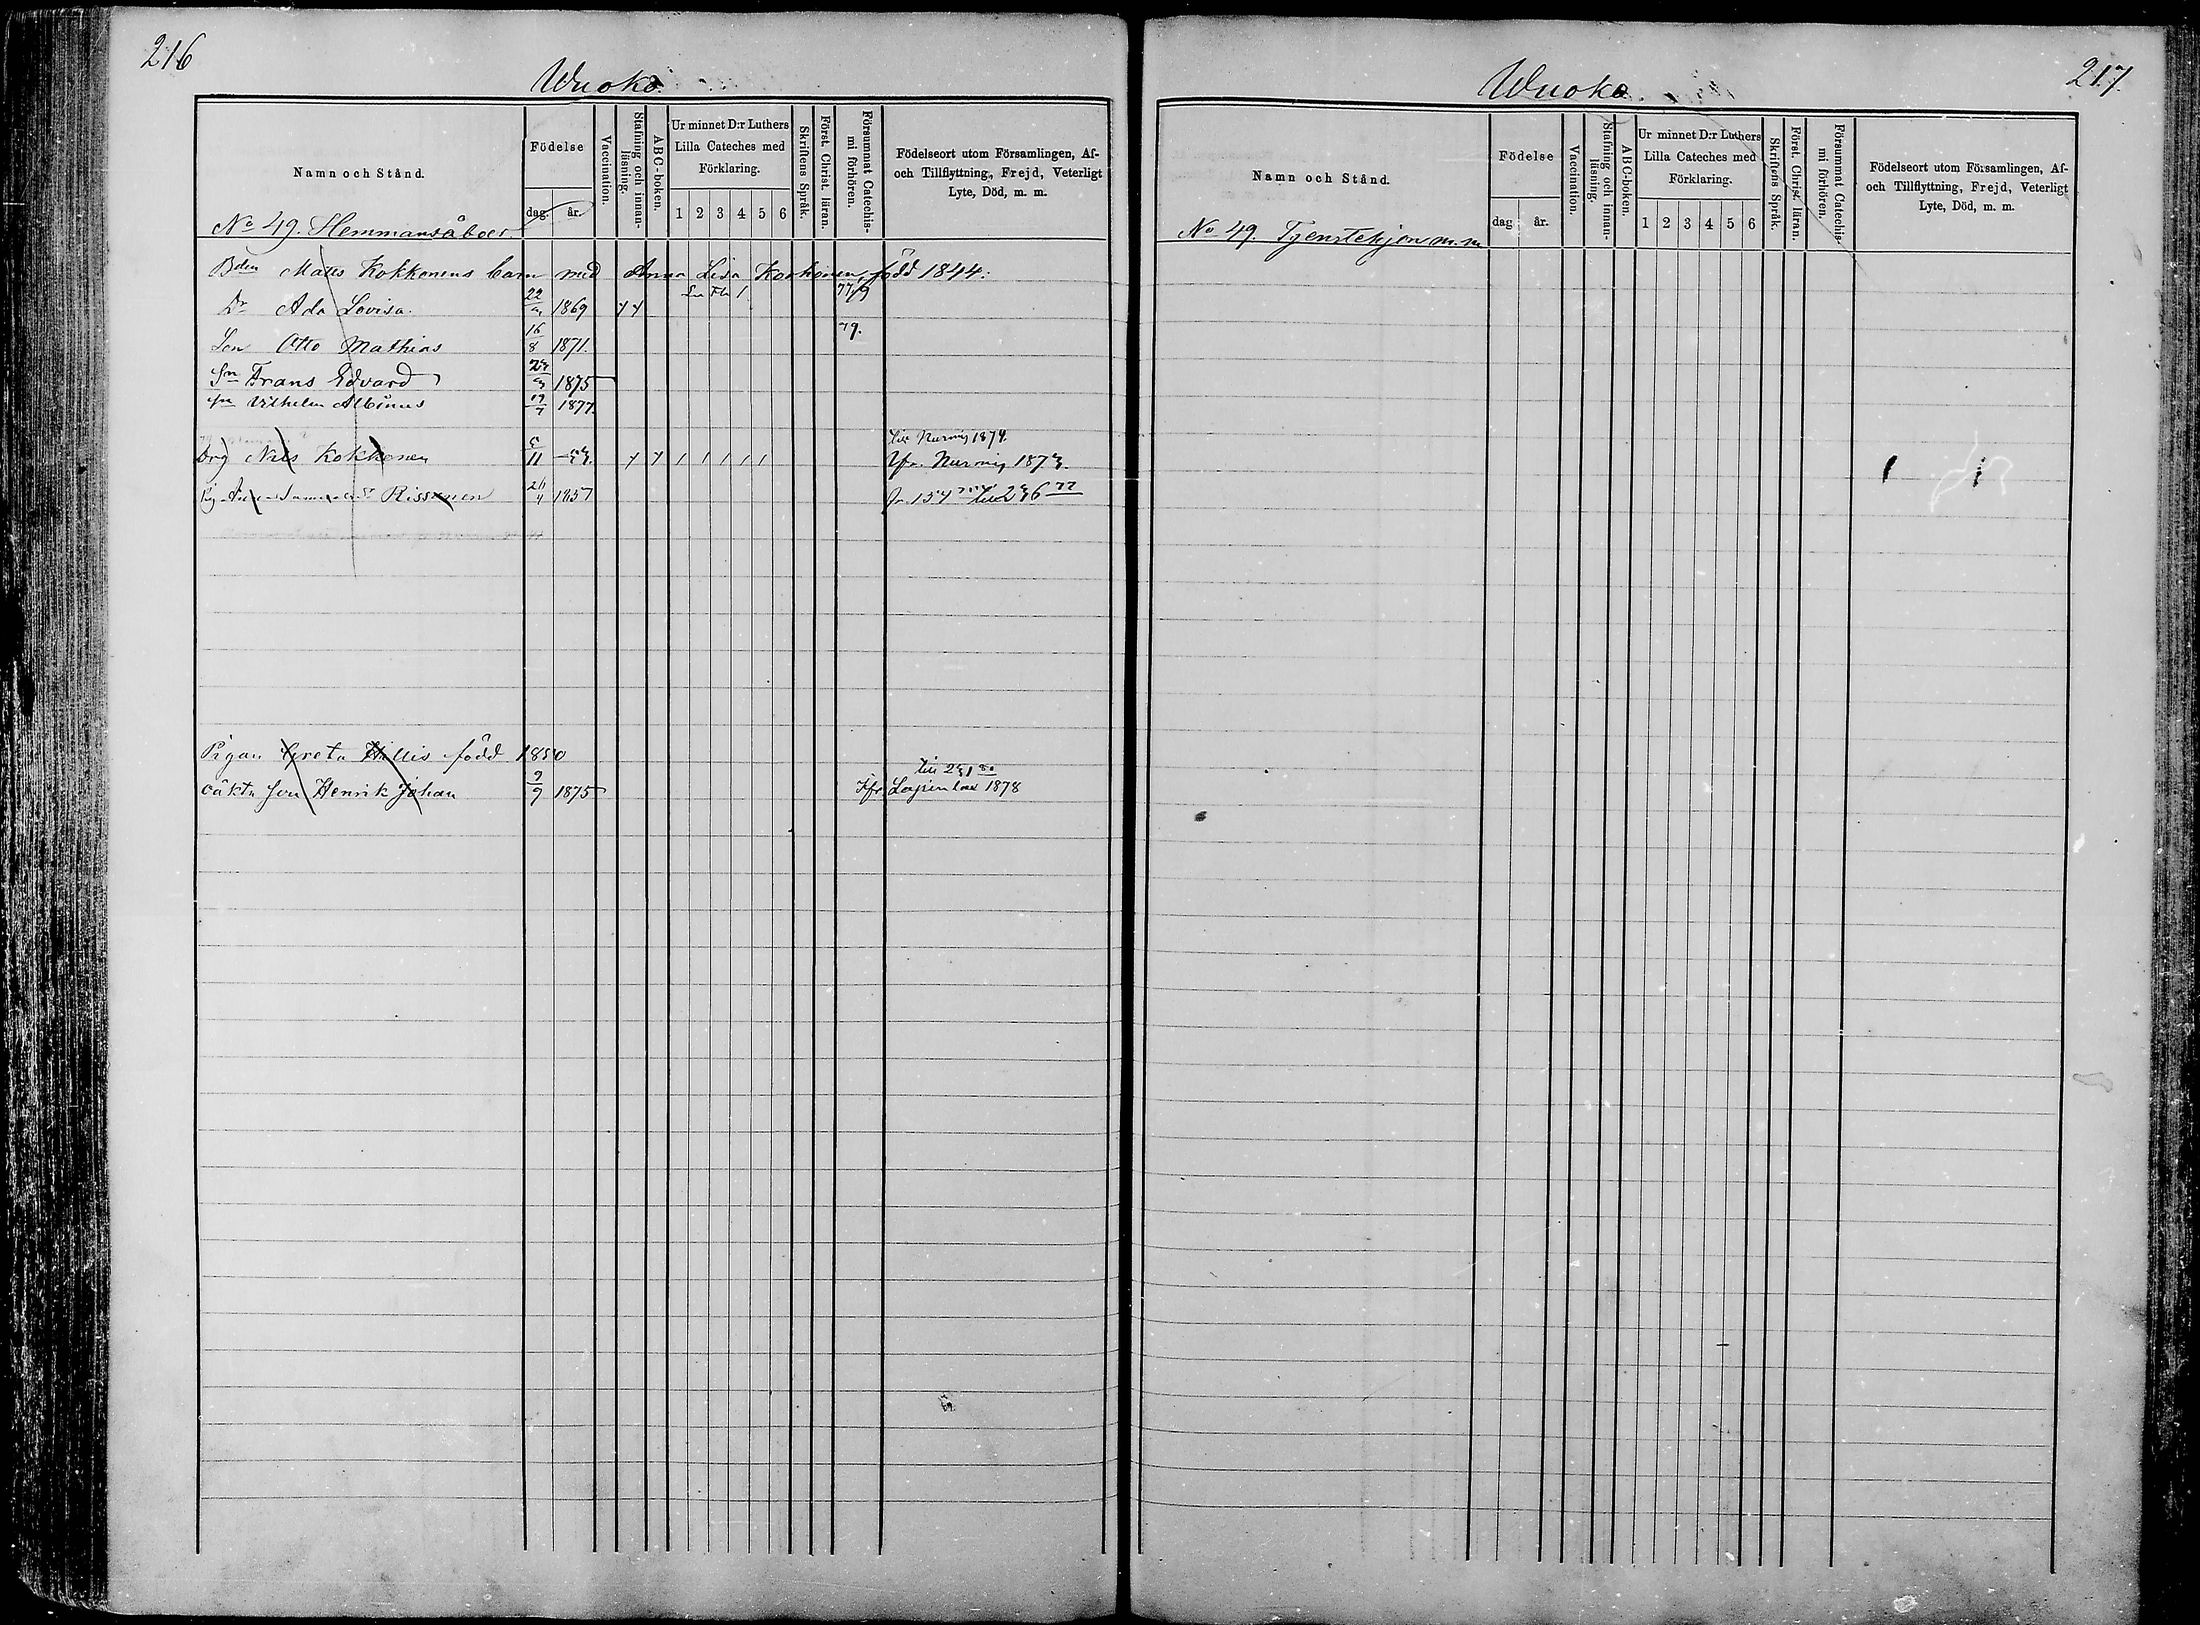 216
Wuoko.
Namn och Stånd.
Födelse
dag. år.
Vaccination.
Stafning och innan-
läsning.
ABC-boken.
Ur minnet D:r Luthers
Lilla Cateches med
Förklaring.
1 2 3 4 5 6
Skriftens Språk.
Först. Christ. läran.
Försummat Catechis-
mi förhören.
Födelseort utom Församlingen, Af-
och Tillflyttning, Frejd, Veterligt
Lyte, Död, m. m.
No 49. Hemmansåboer
Bden Matts Kokkonens barn med Anna Lisa Korhonen, född 1844:
Dr Ada Lovisa. 22 1869 77/9
Son Otto Mathias 16/8 1871. 79.
Sn Frans Edvard 1875
Sn Vilhelm Albinus 19/7 1877.
till Nurmis 1874.
Drg Nils Kokkonen 5/11 53. Nurmis 1873.
Pig Rissanen 1857
Pigan Greta Hillis född 1850
till 231 80
oäkta Son Henrik Johan 9/9 1875 Ifr. Lapinlax 1878
217.
Wuoko.
Namn och Stånd.
Födelse
dag. år.
Vaccination.
Stafning och innan-
läsning.
ABC-boken.
Ur minnet D:r Luthers
Lilla Cateches med
Förklaring.
1 2 3 4 5 6
Skriftens Språk.
Först. Christ. läran.
Försummat Catechis-
mi förhören.
Födelseort utom Församlingen, Af-
och Tillflyttning, Frejd, Veterligt
Lyte, Död, m. m.
No 49. Tjenstehjon m. m.